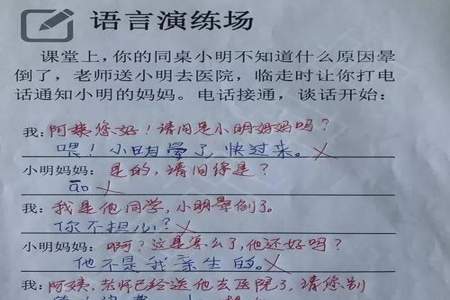 语言演练场
课堂上，你的同桌小明不知道什么原因晕
倒了，老师送小明去医院，临走时让你打电
话通知小明的妈妈。电话接通，谈话开始：
我：阿姨您好！请问是小明妈妈吗？
喂！小明晕了，快过来。
小明妈妈：是的，请问你是？
我：我是他同学，小明晕倒了。
你不担心？
小明妈妈：啊？这是怎么了，他还好吗？
他不是我亲生的。
我：阿姨，老师已经送他去医院了，请您别